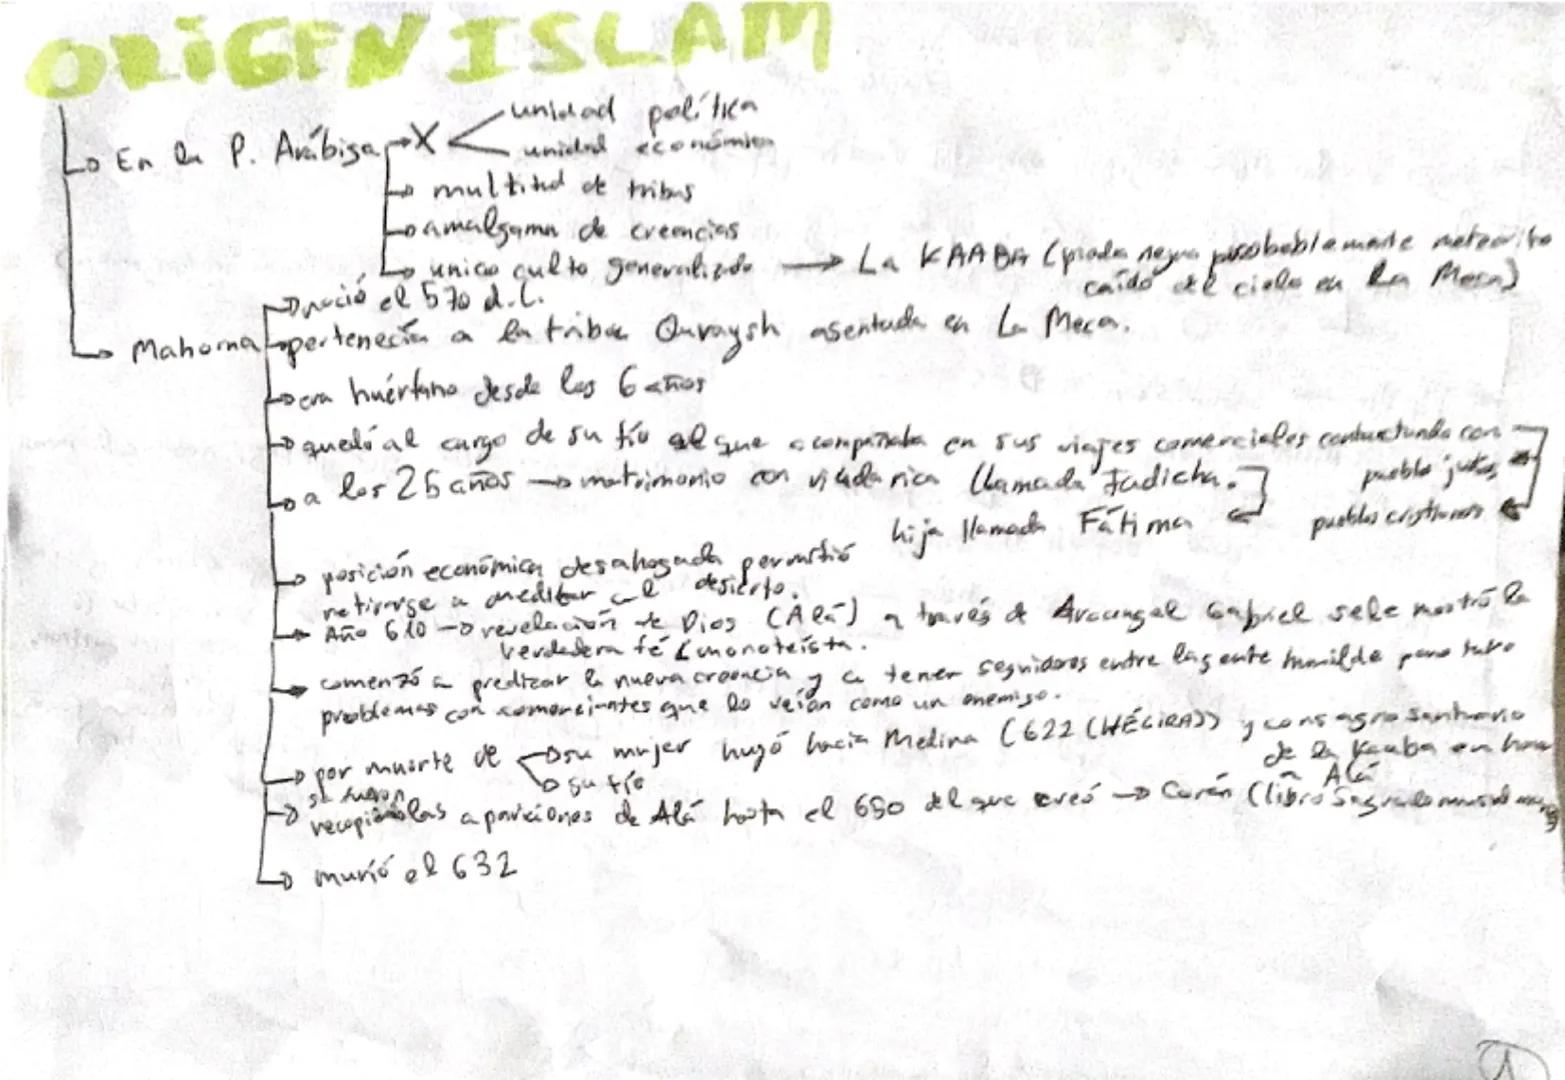 ORIGEN ISLAM
En la P. Arábiga → X unidad política
unidad económica
multitud de tribus
amalgama de creencias
único culto generalizado → La KAABA (piedra negra probablemente meteorito
caído del cielo en La Meca)
nació el 570 d.C.
Mahoma pertenecía a la tribu Quraysh asentada en La Meca.
era huérfano desde los 6 años
quedó al cargo de su tío al que acompañaba en sus viajes comerciales contactando con
pueblo judíos
a los 25 años → matrimonio con viuda rica llamada Jadicha.
hija llamada Fátima
pueblos cristianos
posición económica desahogada permitió
retirarse a meditar al desierto.
Año 610 → revelación de Dios (Alá) a través de Arcángel Gabriel se le mostró la
verdadera fé monoteísta.
comenzó a predicar la nueva creencia y a tener seguidores entre la gente humilde pero tuvo
problemas con comerciantes que lo veían como un enemigo.
por muerte de → su mujer huyó hacia Medina (622 (HÉGIRA)) y consagro santuario
→ su tío
de la Kaaba en
Alá
recopilando las apariciones de Alá hasta el 650 del que creó → Corán (libro Sagrado
murió el 632
1